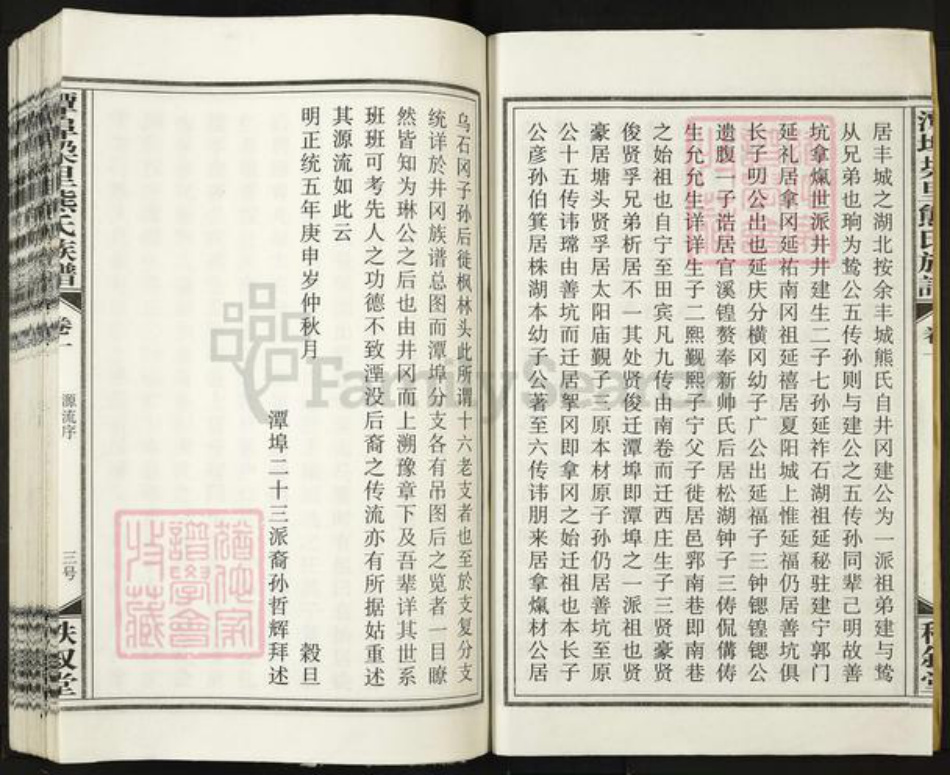 居丰城之湖北按余丰城熊氏自井冈建公为一派祖弟建与鸷
从兄弟也珦为鸷公五传孙则与建公之五传孙同辈己明故善
坑拿爣世派井井建生二子七孙延祚石湖祖延秘驻建宁郭门
延礼居拿冈延祐南冈祖延禧居夏阳城上惟延福仍居善坑俱
长子明公出也延庆分横冈幼子广公出延福子三钟锶锽锶公
遗腹一子诰居官溪锽赘奉新帅氏后居松湖钟子三俦侃傋俦
生允允生详详生子二熙觐熙子宁父子徙居邑郭南巷即南巷
之始祖也自宁至田宾凡九传由南卷而迁西庄生子三贤豪贤
俊贤孚兄弟析居不一其处贤俊迁潭埠即潭埠之一派祖也贤
豪居塘头贤孚居太阳庙觐子三原本材原子孙仍居善坑至原
公十五传讳瑺由善坑而迁居挐冈即拿冈之始迁祖也本长子
公彦孙伯箕居株湖本幼子公著至六传讳朋来居拿爣材公居
乌石冈子孙后徙枫林头此所谓十六老支者也至於支复分支
统详於井冈族谱总图而潭埠分支各有吊图后之览者一目瞭
然皆知为琳公之后也由井冈而上溯豫章下及吾辈详其世系
班班可考先人之功德不致湮没后裔之传流亦有所据姑重述
其源流如此云
明正统五年庚申岁仲秋月 榖旦
潭埠二十三派裔孙哲辉拜述
熊氏族谱
卷一
源流序
三号
秩叙堂
FamilySearch